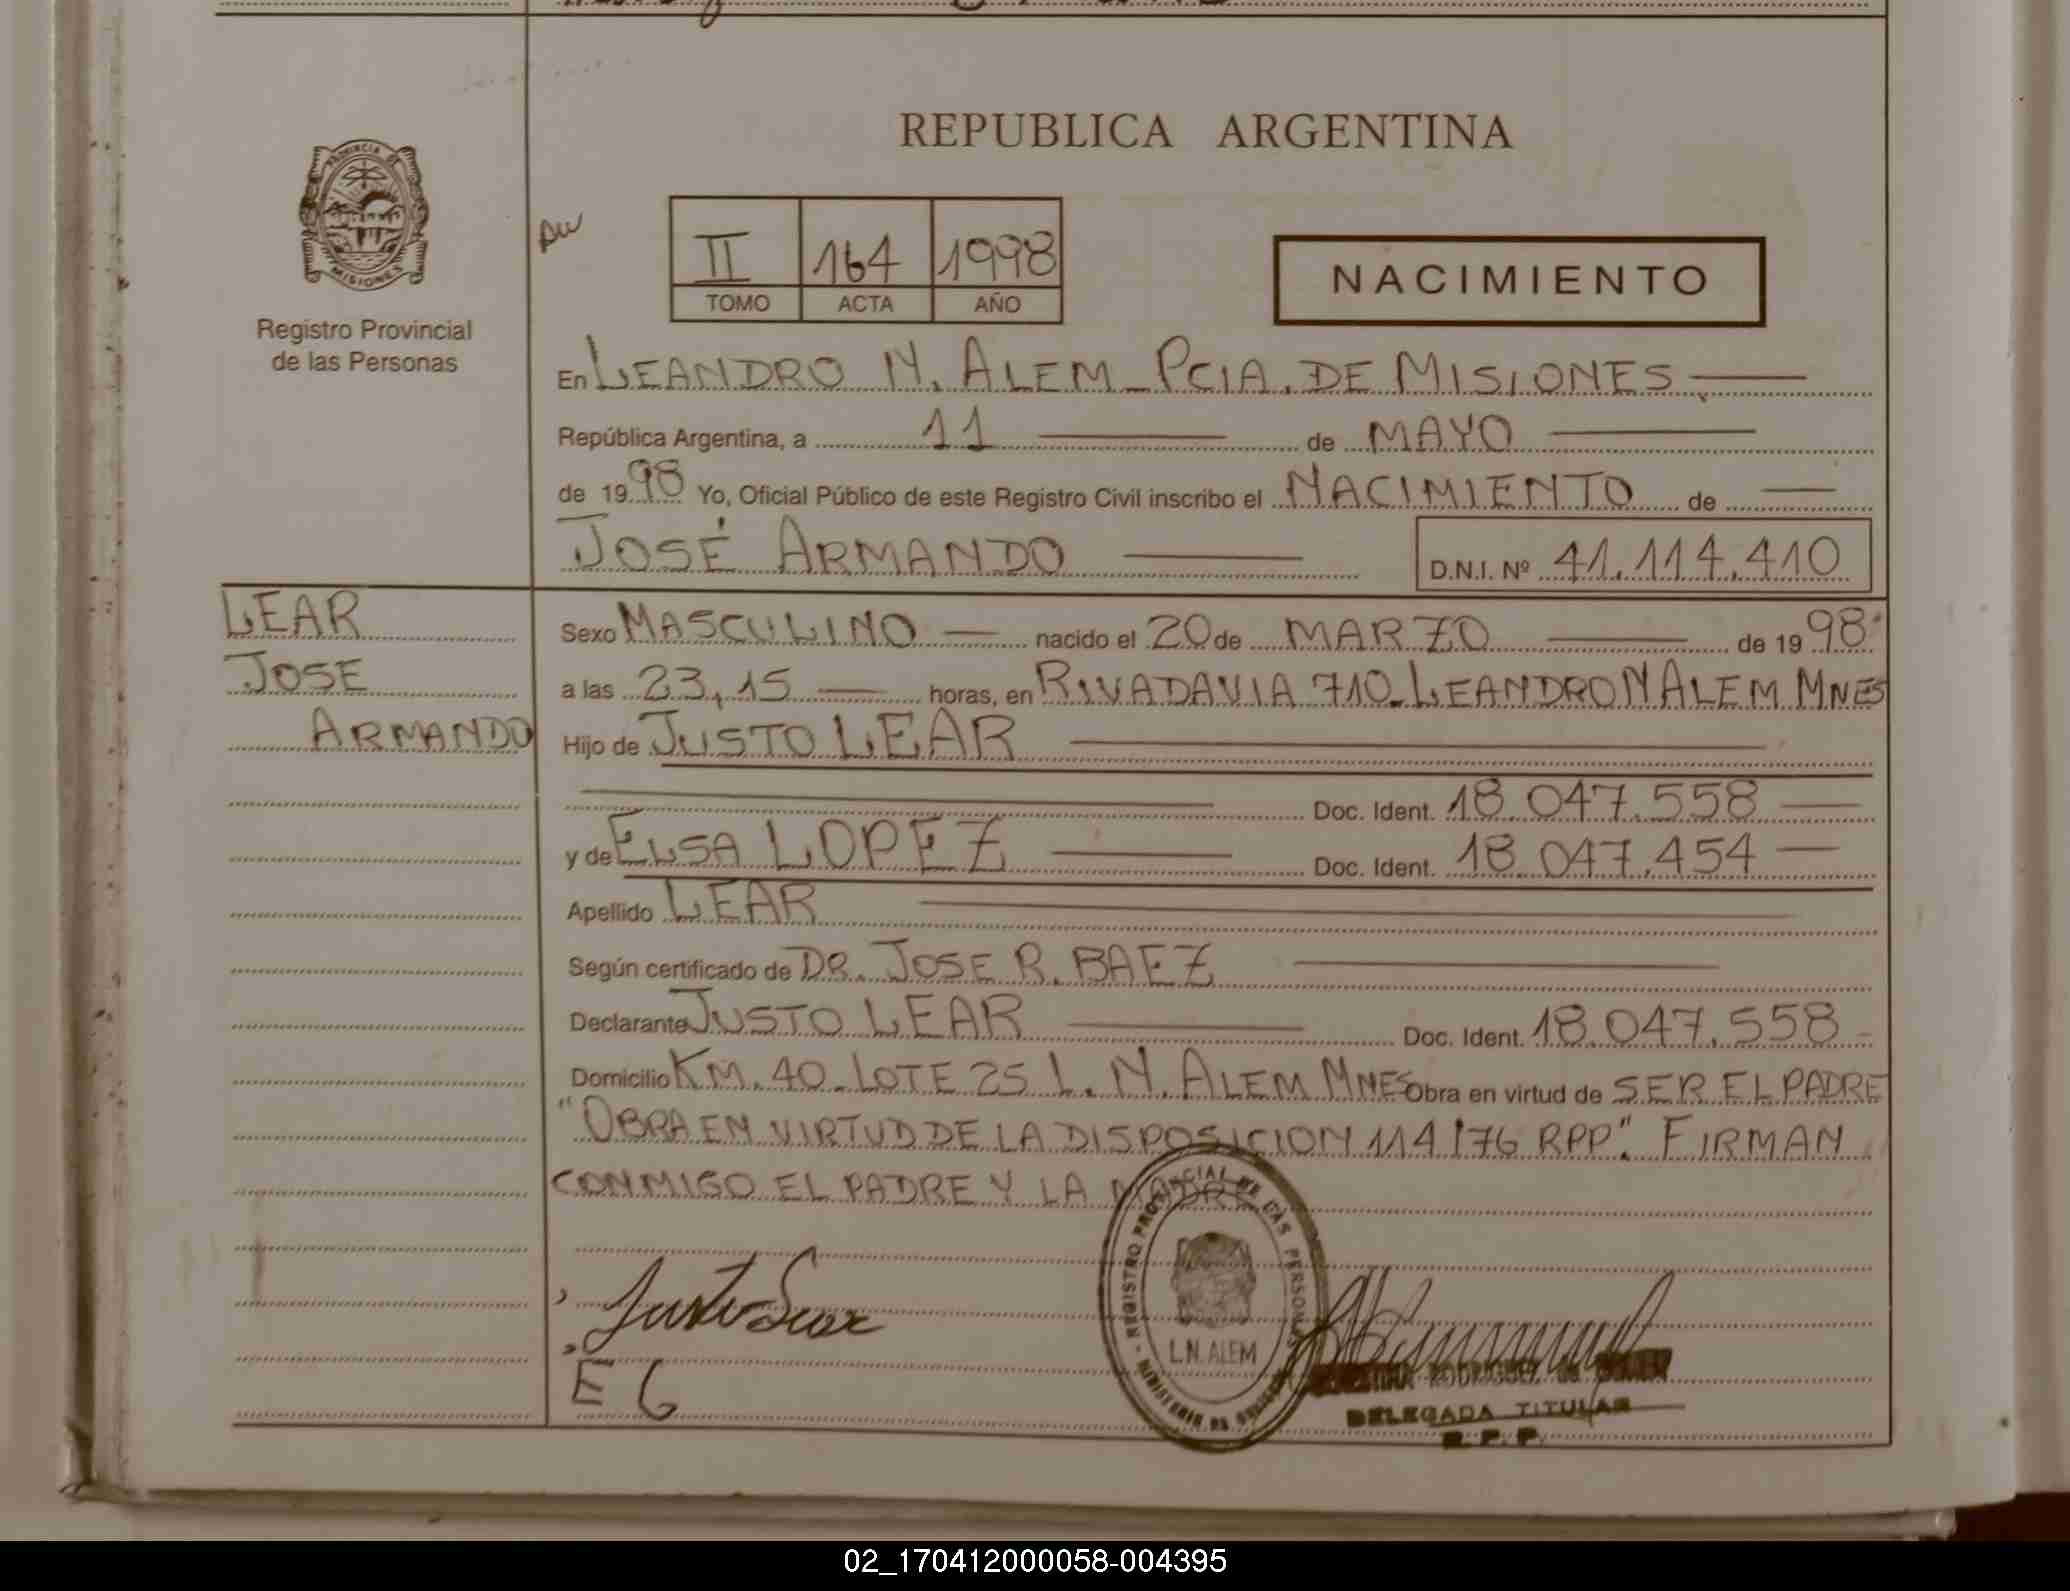 REPUBLICA ARGENTINA
PROVINCIA DE
MISIONES
Registro Provincial
de las Personas
II 164 1998
TOMO ACTA AÑO
NACIMIENTO
En LEANDRO N. ALEM - PCIA. DE MISIONES
República Argentina, a 11 de MAYO
de 1998 Yo, Oficial Público de este Registro Civil inscribo el NACIMIENTO de
JOSÉ ARMANDO
D.N.I. Nº 41.114.410
LEAR
JOSE
ARMANDO
Sexo MASCULINO nacido el 20 de MARZO de 1998
a las 23,15 horas, en RIVADAVIA 710 - LEANDRO N ALEM MNES
Hijo de JUSTO LEAR
Doc. Ident. 18.047.558
y de ELSA LOPEZ Doc. Ident. 18.047.454
Apellido LEAR
Según certificado de DR. JOSE R. BAEZ
Declarante JUSTO LEAR Doc. Ident. 18.047.558
Domicilio KM. 40 - LOTE 25 L. N. ALEM MNES Obra en virtud de SER EL PADRE
"OBRA EN VIRTUD DE LA DISPOSICION 114/76 RPP". FIRMAN
CONMIGO EL PADRE Y LA MADRE
REGISTRO PROVINCIAL DE LAS PERSONAS
L.N. ALEM
E
RODRIGUEZ de
DELEGADA TITULAR
R. P. P.
02_170412000058-004395